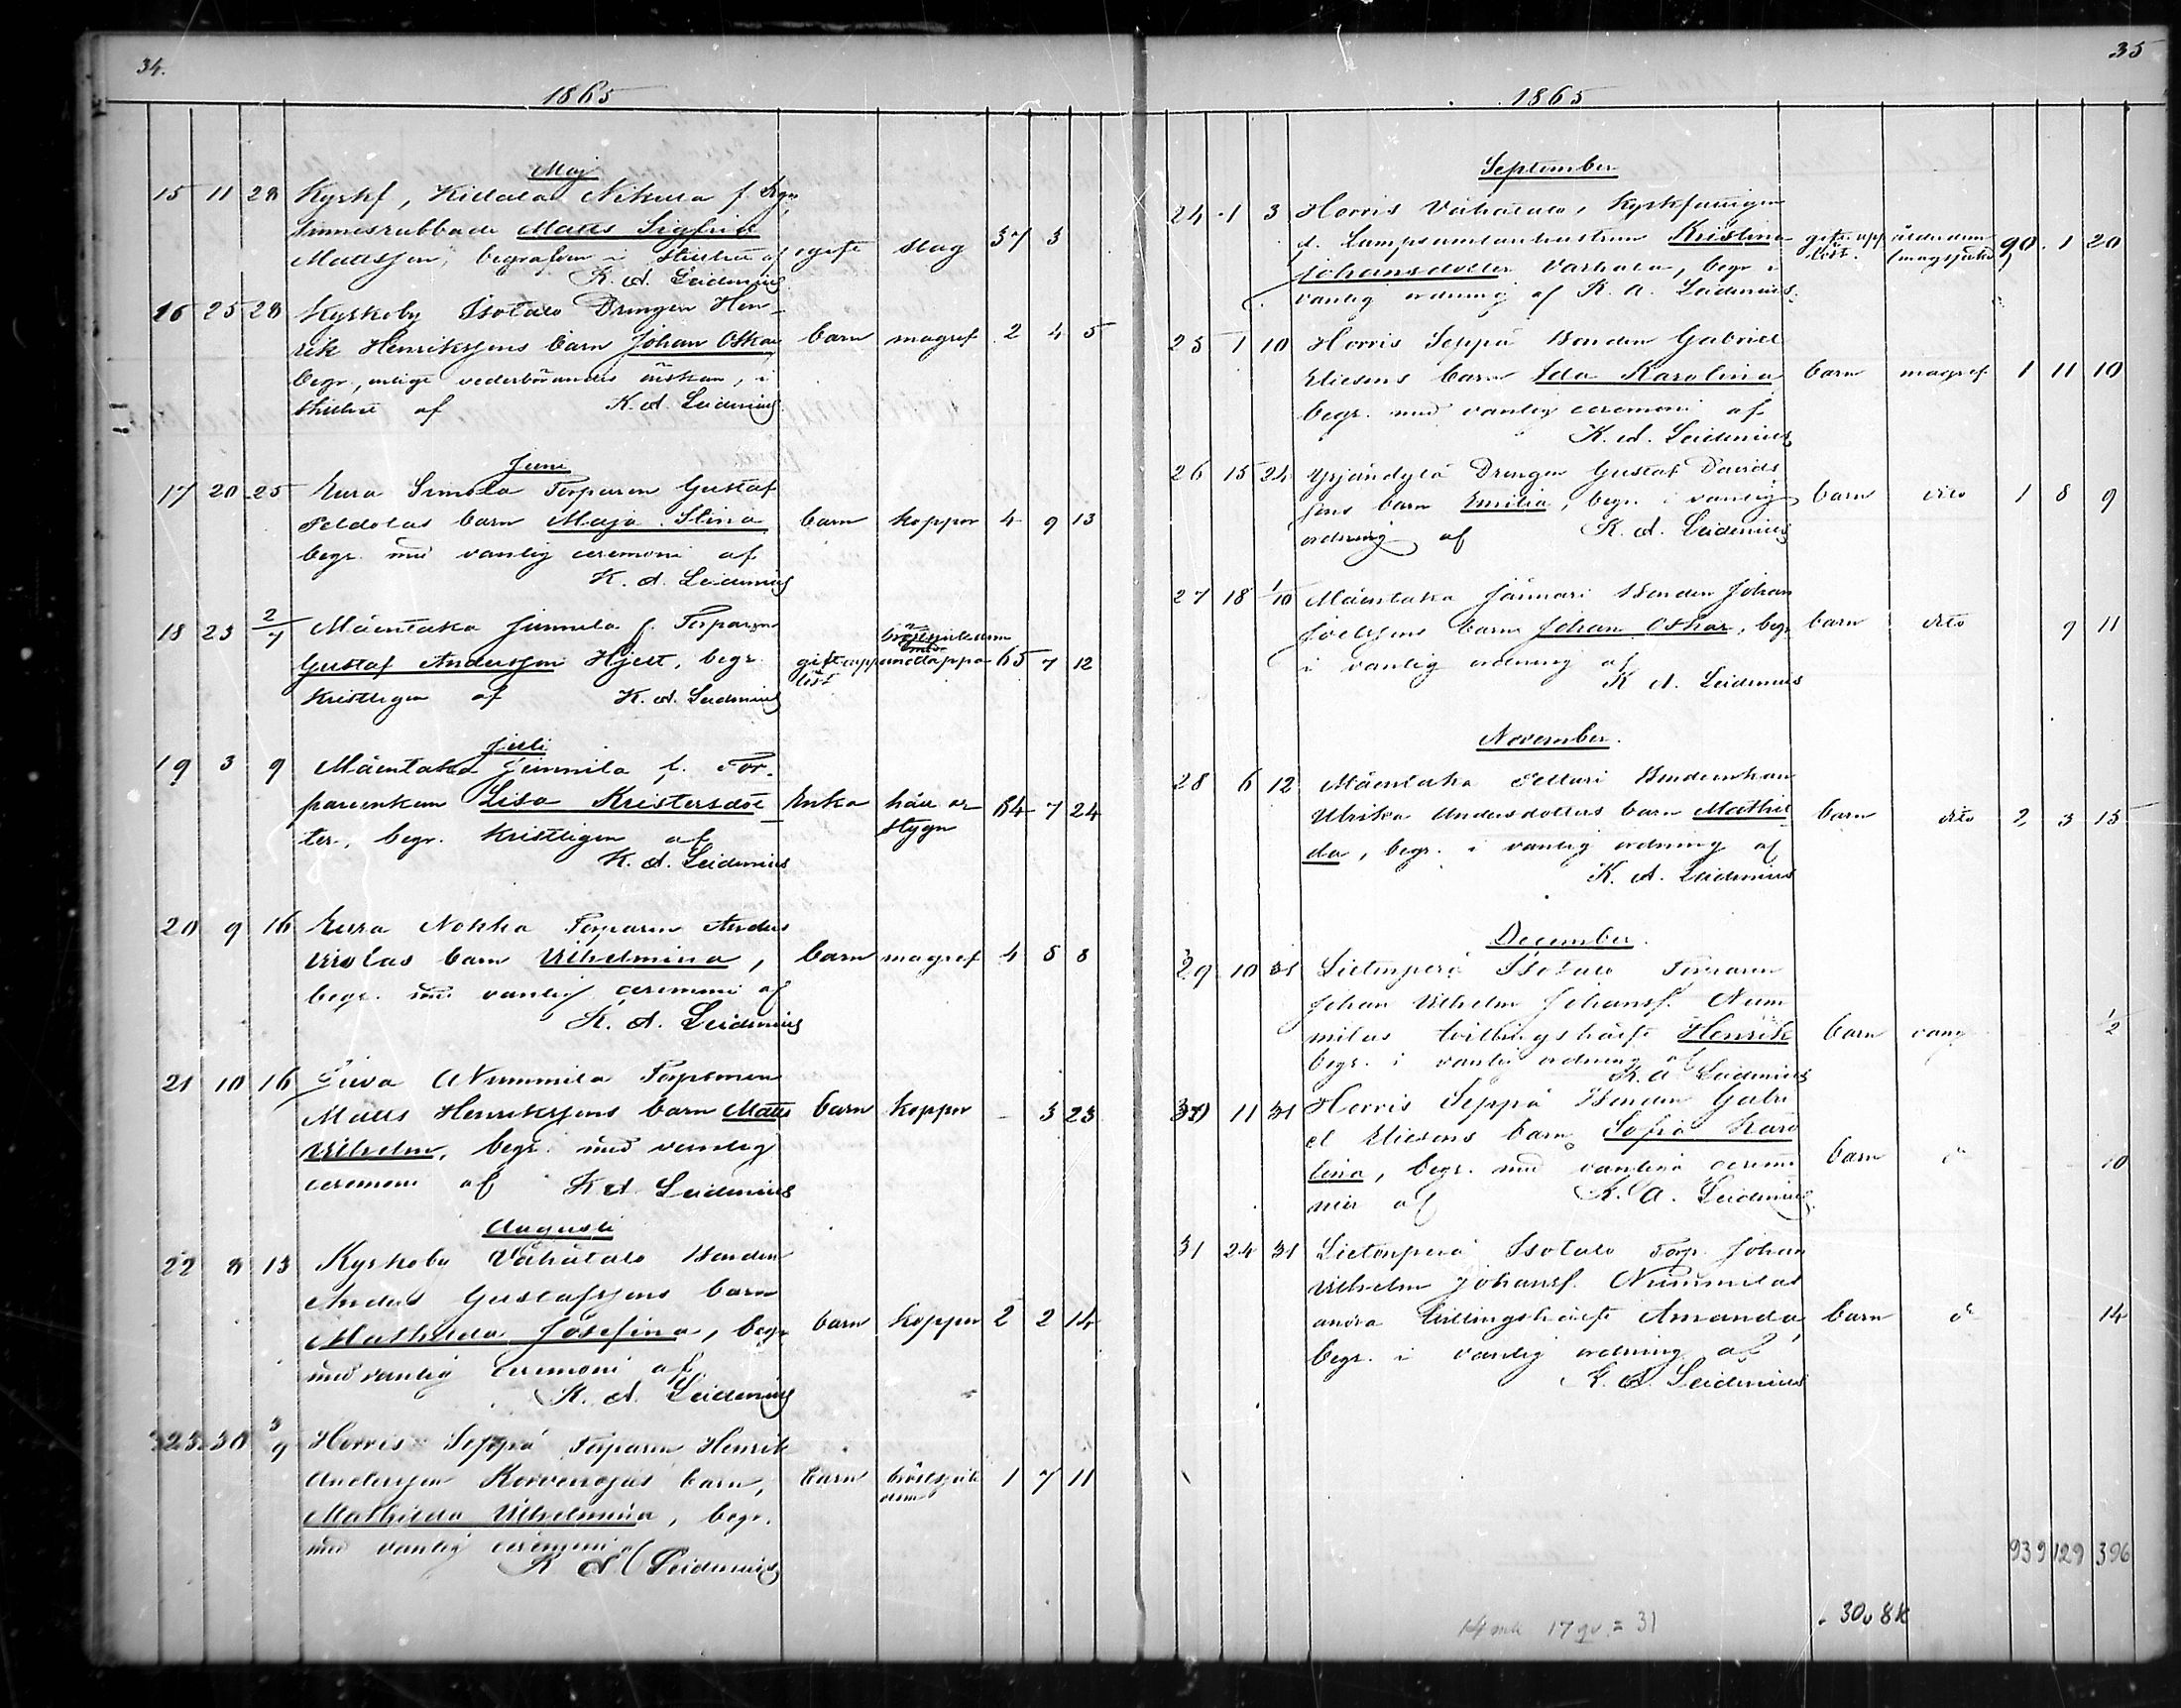 34.
1865
Maj
15 11 28 Kyrkf, Kidala Nikula f. 
sinnesrubbade Matts Sigfrid
Mattsson, begrafven i stillhet af ogift slag 37 3
K. A. Leidenius
16 25 28 Kyrkoby Isotalo Drengen Hen-
rik Henrikssons barn Johan Oskar barn magref 2 4 5
begr., enligt vederbörandes önskan, i
stillhet af K. A. Leidenius
Juni
17 20 25 Eura Simola Torparen Gustaf
Peldolas barn Maja Stina barn koppor 4 9 13
begr. med vanlig ceremoni af
K. A. Leidenius
18 23 2/7 Mäentaka Junnila f. Torparen
Gustaf Andersson Hjert, begr. gift upp löst bröstsjukdom 65 7 12
kristligen af K. A. Leidenius
Juli
19 3 9 Mäentaka Junnila f. Tor-
parenkan Lisa Kristersdot Enka håll o stygn 64 7 24
ter, begr. kristligen af
K. A. Leidenius
20 9 16 Eura Nokka Torparen Anders
barn Vilhelmina, barn magref 4 8 8
begr. med vanlig ceremoni af
K. A. Leidenius
21 10 16 Nummila Torparen
Matts Henrikssons barn Matts barn koppor - 3 23
Vilhelm, begr. med vanlig
ceremoni af K. A. Leidenius
Augusti
22 8 13 Kyrkoby Vähätalo Bonden
Anders Gustafssons barn
Mathilda Josefina, begr. barn koppor 2 2 14
med vanlig ceremoni af
K. A. Leidenius
23 30 3/9 Horris Seppä Torparen Henrik
Andersson Korvenojas barn, barn bröstsjuk dom 1 7 11
Mathilda Vilhelmina, begr.
med vanlig ceremoni af
K. A. Leidenius
35
1865
September
24 1 3 Horris Vähätalo, Kyrkfattigen
d. Kristina gift upp löst. ålderdom (magsjukd) 90 1 20
Johansdotter Varhala, begr i
vanlig ordning af K. A. Leidenius.
25 1 10 Horris Seppä Bonden Gabriel
Eliesons barn Ida Karolina barn magref 1 11 10
begr. med vanlig ceremoni af
K. A. Leidenius
26 15 24 Yrjänäylä Drengen Gustaf Davids
sons barn Emilia, begr. i vanlig barn dito 1 8 9
ordning af K. A. Leidenius
27 18 1/10 Mäentaka Jännäri Bonden Johan
Joelssons barn Johan Oskar, begr. barn dito 9 11
i vanlig ordning af
K A. Leidenius
November.
28 6 12 Mäentaka Bondeenkan
Ulrika Andersdotters barn Mathil barn dito 2 3 15
da, begr. i vanlig ordning af
K. A. Leidenius
December.
29 10 31 Lietenperä Isotalo Torparen
Johan Vilhelm Johanss. Num
milas tvillingshälft Henrik barn 1/2
begr. i vanlig ordning af
K. A. Leidenius
30 11 31 Horris Seppä Bonden Gabri
el Eliesons barn Sofia Karo
lina, begr. med vanliga ceremo barn d 10
nier af K. A. Leidenius
31 24 31 Lietenperä Isotalo Torp. Johan
Vilhelm Johanss. Nummilas
andra tvillingshälft Amanda, barn d 14
begr. i vanlig ordning af
K. A. Leidenius
939 129 396
30 8k
14 mk 17 qv = 31